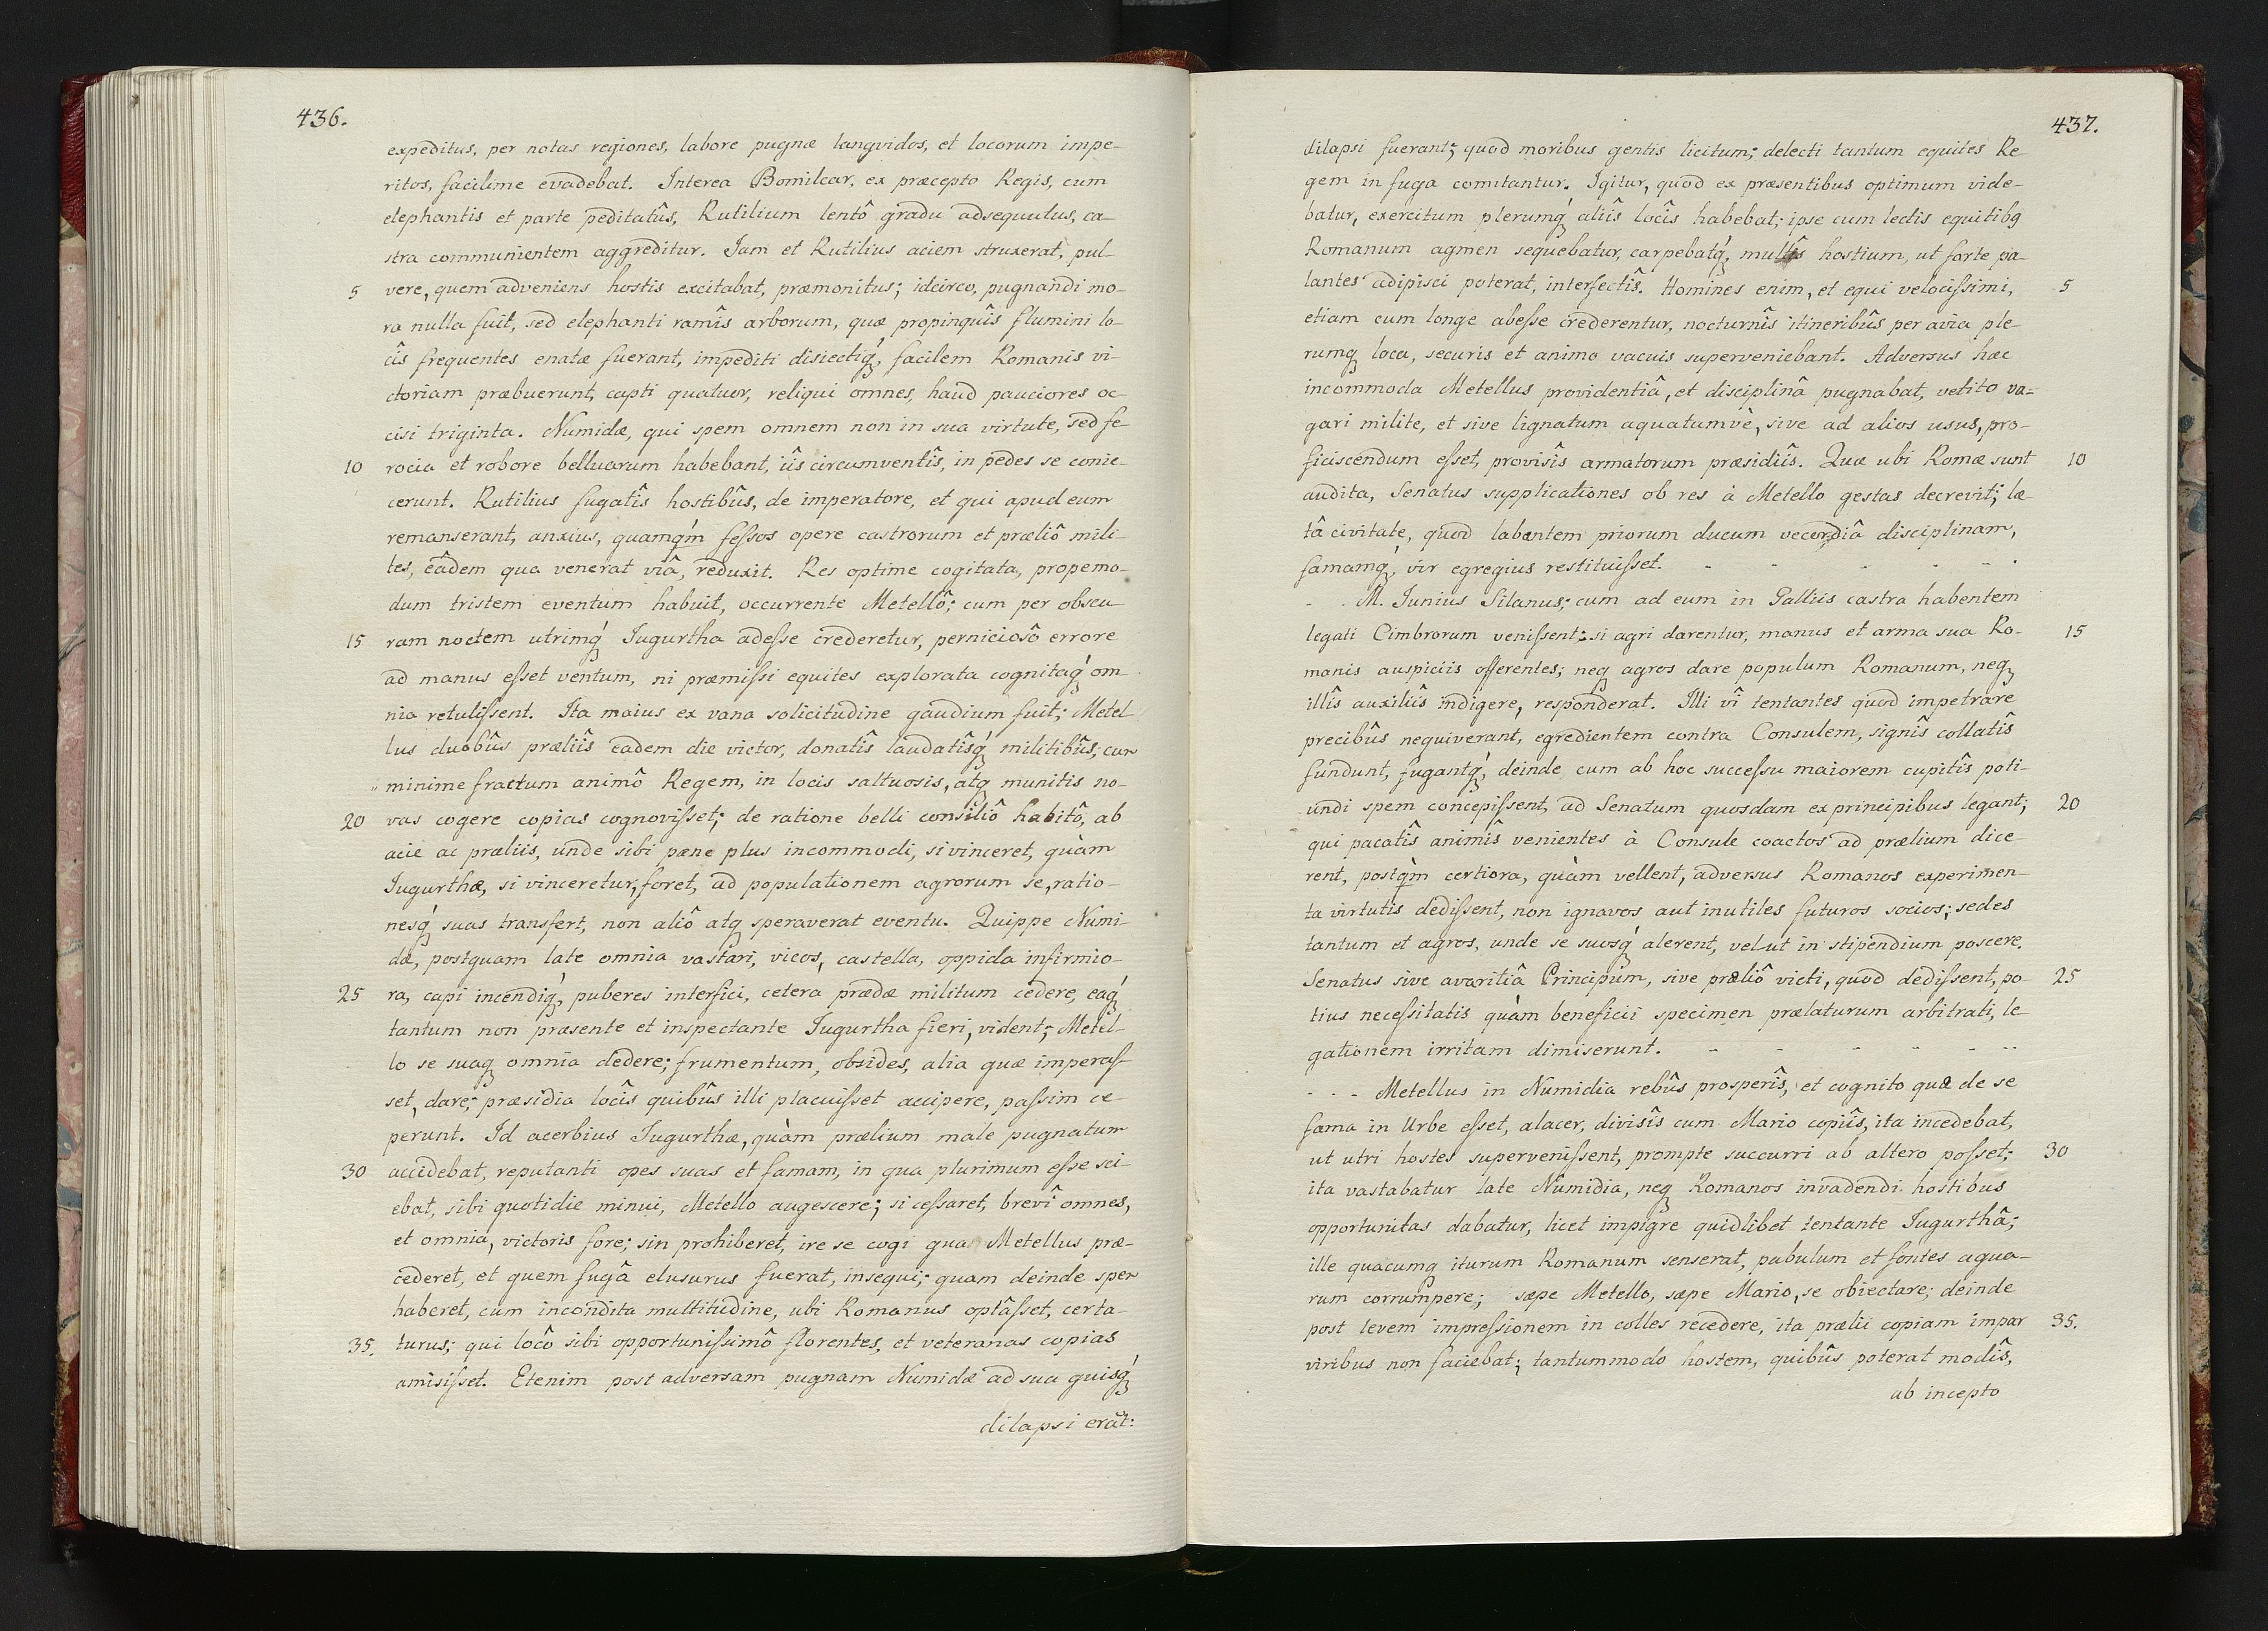 436.
expeditus, per notas regiones, labore pugnæ langvidos, et locorum impe-
ritos, facilime evadebat. Interea Bomilcar, ex præcepto Regis, cum
elephantis et parte peditatûs, Rutilium lentô gradu adsequutus, ca-
stra communientem aggreditur. Iam et Rutilius aciem struxerat, pul-
5 vere, quem adveniens hostis excitabat, præmonitus; idcirco, pugnandi mo-
ra nulla fuit, sed elephanti ramîs arborum, quæ propinquîs flumini lo-
cîs frequentes enatæ fuerant, impediti disiectiq́, facilem Romanis vi-
ctoriam præbuerunt, capti quatuor, reliqui omnes, haud pauciores oc-
cisi triginta. Numidæ, qui spem omnem non in sua virtute, sed fe-
10 rocia et robore belluarum habebant, iîs circumventîs, in pedes se conie-
cerunt. Rutilius fugatîs hostibûs, de imperatore, et qui apud eum
remanserant, anxius, quamq́m fessos opere castrorum et præliô mili-
tes, eâdem qua venerat viâ, reduxit. Res optime cogitata, propemo-
dum tristem eventum habuit, occurrente Metellô; cum per obscu-
15 ram noctem utrimq́ Iugurtha adesse crederetur, perniciosô errore
ad manus esset ventum, ni præmissi equites explorata cognitaq́ om-
nia retulissent. Ita maius ex vana solicitudine gaudium fuit; Metel-
lus duobûs præliîs eadem die victor, donatîs laudatîsq́ militibûs; cum
minime fractum animô Regem, in locis saltuosis, atq munitis no-
20 vas cogere copias cognovisset; de ratione belli consiliô habitô, ab
acie ac præliis, unde sibi pæne plus incommodi, si vinceret, quàm
Iugurthæ, si vinceretur, foret, ad populationem agrorum se, ratio-
nesq́ suas transfert, non aliô atq speraverat eventu. Quippe Numi-
dæ, postquam late omnia vastari, vicos, castella, oppida infirmio-
25 ra, capi incendiq́, puberes interfici, cetera prædæ militum cedere, eaq́
tantum non præsente et inspectante Iugurtha fieri, vident; Metel-
lo se suaq omnia dedere; frumentum, obsides, alia quæ imperas-
set, dare; præsidia locîs quibûs illi placuisset accipere, passim cæ-
perunt. Id acerbius Iugurthæ, quàm prælium male pugnatum
30 accidebat, reputanti opes suas et famam, in qua plurimum esse sci-
ebat, sibi quotidie minui, Metello augescere; si cessaret, brevî omnes,
et omnia, victoris fore; sin prohiberet, ire se cogi qua Metellus præ-
cederet, et quem fugâ elusurus fuerat, insequi; quam deinde spem
haberet, cum incondita multitudine, ubi Romanus optâsset, certa-
35. turus; qui locô sibi opportunissimô florentes, et veteranas copias
amisisset. Etenim post adversam pugnam Numidæ ad sua quisq́
dilapsi erāt:
437.
dilapsi fuerant; quod moribus gentis licitum; delecti tantum equites Re-
gem in fuga comitantur. Igitur, quod ex præsentibus optimum vide-
batur, exercitum plerumq́ aliîs locîs habebat; ipse cum lectis equitibꝯ
Romanum agmen sequebatur, carpebatq́, multîs hostium, ut forte pa-
lantes adipisci poterat, interfectîs. Homines enim, et equi velocissimi, 5
etiam cum longe abesse crederentur, nocturnîs itineribûs per avia ple-
rumq loca, securis et animo vacuis superveniebant. Adversus hæc
incommoda Metellus providentiâ, et disciplinâ pugnabat, vetito va-
gari milite, et sive lignatum aquatumvè, sive ad alios usus, pro-
ficiscendum esset, provisîs armatorum præsidiîs. Quæ ubi Romæ sunt 10
audita, Senatus supplicationes ob res à Metello gestas decrevit; læ-
tâ civitate, quod labentem priorum ducum vecordiâ disciplinam,
famamq́, vir egregius restituisset. - - - - - .
- . M. Iunius Silanus; cum ad eum in Galliis castra habentem
legati Cimbrorum venissent: si agri darentur, manus et arma sua Ro- 15
manis auspiciis offerentes; neq agros dare populum Romanum, neq
illîs auxiliîs indigere, responderat. Illi vî tentantes quod impetrare
precibûs nequiverant, egredientem contra Consulem, signîs collatîs
fundunt, fugantq́, deinde cum ab hoc successu maiorem cupitîs poti-
undi spem concepissent, ad Senatum quosdam ex principibus legant; 20
qui pacatîs animîs venientes à Consule coactos ad prælium dice-
rent, postq́m certiora, quàm vellent, adversus Romanos experimen-
ta virtutis dedissent, non ignavos aut inutiles futuros socios; sedes
tantum et agros, unde se suosq́ alerent, velut in stipendium poscere.
Senatus sive avaritiâ Principum, sive præliô victi, quod dedissent, po- 25
tius necessitatis quàm beneficii specimen prælaturum arbitrati, le-
gationem irritam dimiserunt. - - - - - --
- - - Metellus in Numidia rebûs prosperîs, et cognito quæ de se
fama in Urbe esset, alacer, divisîs cum Mario copiîs, ita incedebat,
ut utri hostes supervenissent, prompte succurri ab altero posset; 30
ita vastabatur late Numidia, neq Romanos invadendi hostibus
opportunitas dabatur, licet impigre quidlibet tentante Iugurthâ;
ille quacumq iturum Romanum senserat, pabulum et fontes aqua-
rum corrumpere; sæpe Metello, sæpe Mario, se obiectare; deinde
post levem impressionem in colles recedere, ita prælii copiam impar 35.
viribus non faciebat; tantummodo hostem, quibûs poterat modîs,
ab incepto